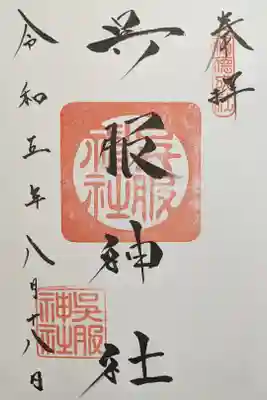 奉拝
呉服神社
令和五年八月十八日
呉服
神社
呉服
神社